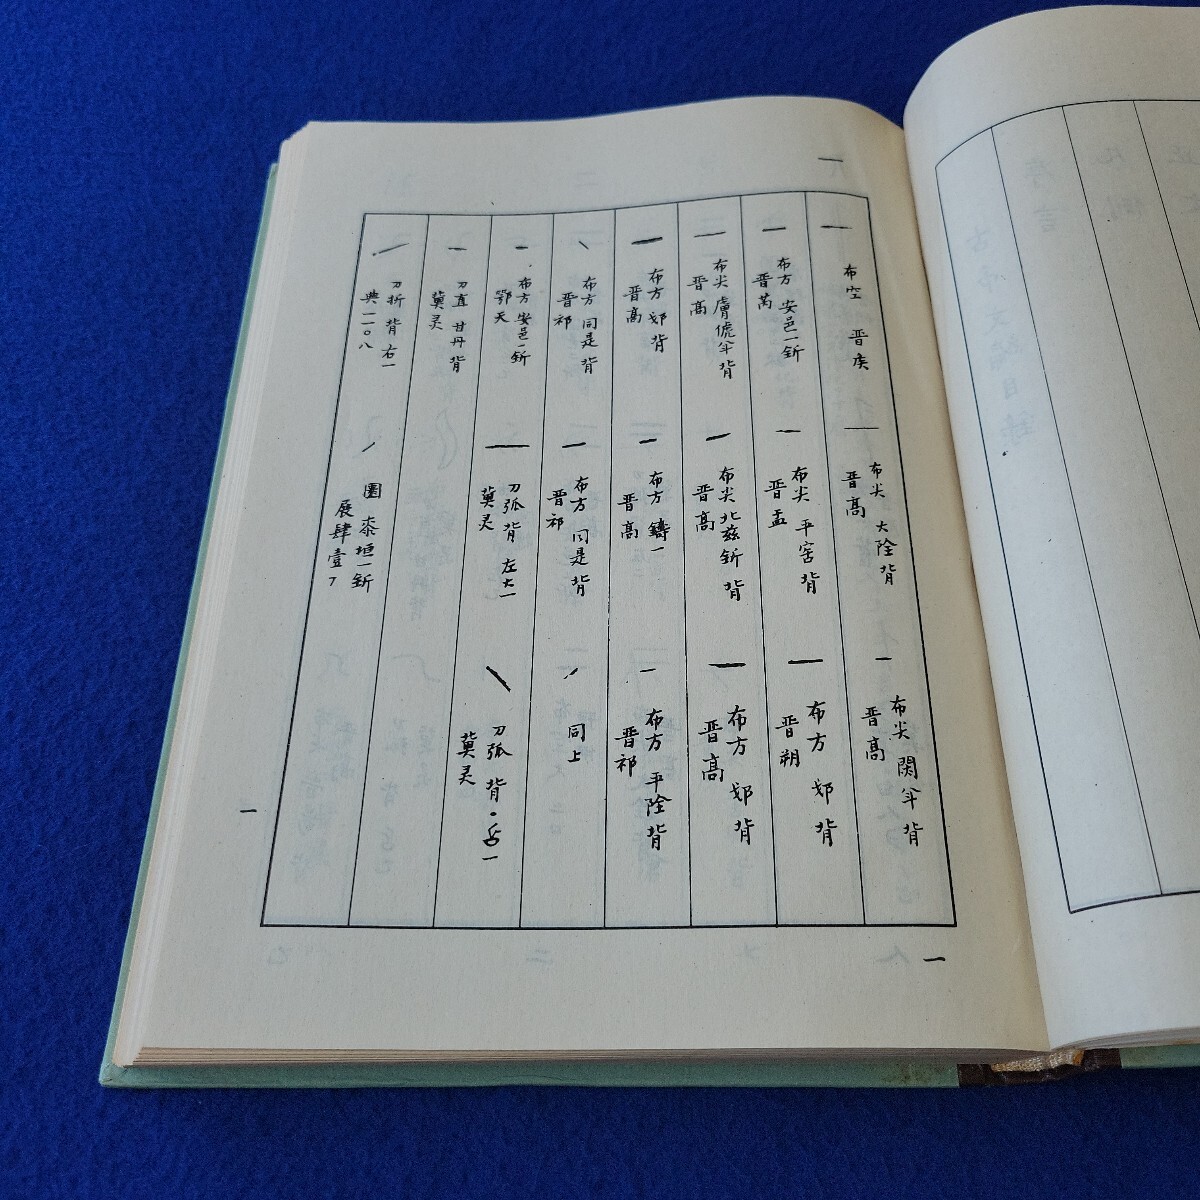 一
布空 晋矦
一
布尖 大陰背
晋高
一
布尖 閼伞背
晋高
一
布方 安邑一釿
晋芮
一
布尖 平窑背
晋盂
一
布方 背
晋朔
一
布尖 膚虒伞背
晋高
一
布尖 北茲釿背
晋高
一
布方 背
晋高
一
布方 背
晋高
一
布方 鑄一
晋高
一
布方 平陰背
晋祁
布方 同是背
晋祁
一
布方 同是背
晋祁
同上
一
布方 安邑一釿
鄂天
一
刀弧 背 左大一
冀灵
刀弧 背・一
冀灵
一
刀直 甘丹 背
冀灵
刀折 背 右一
典一一〇八
圜 桼垣一釿
展肆壹7
一
一